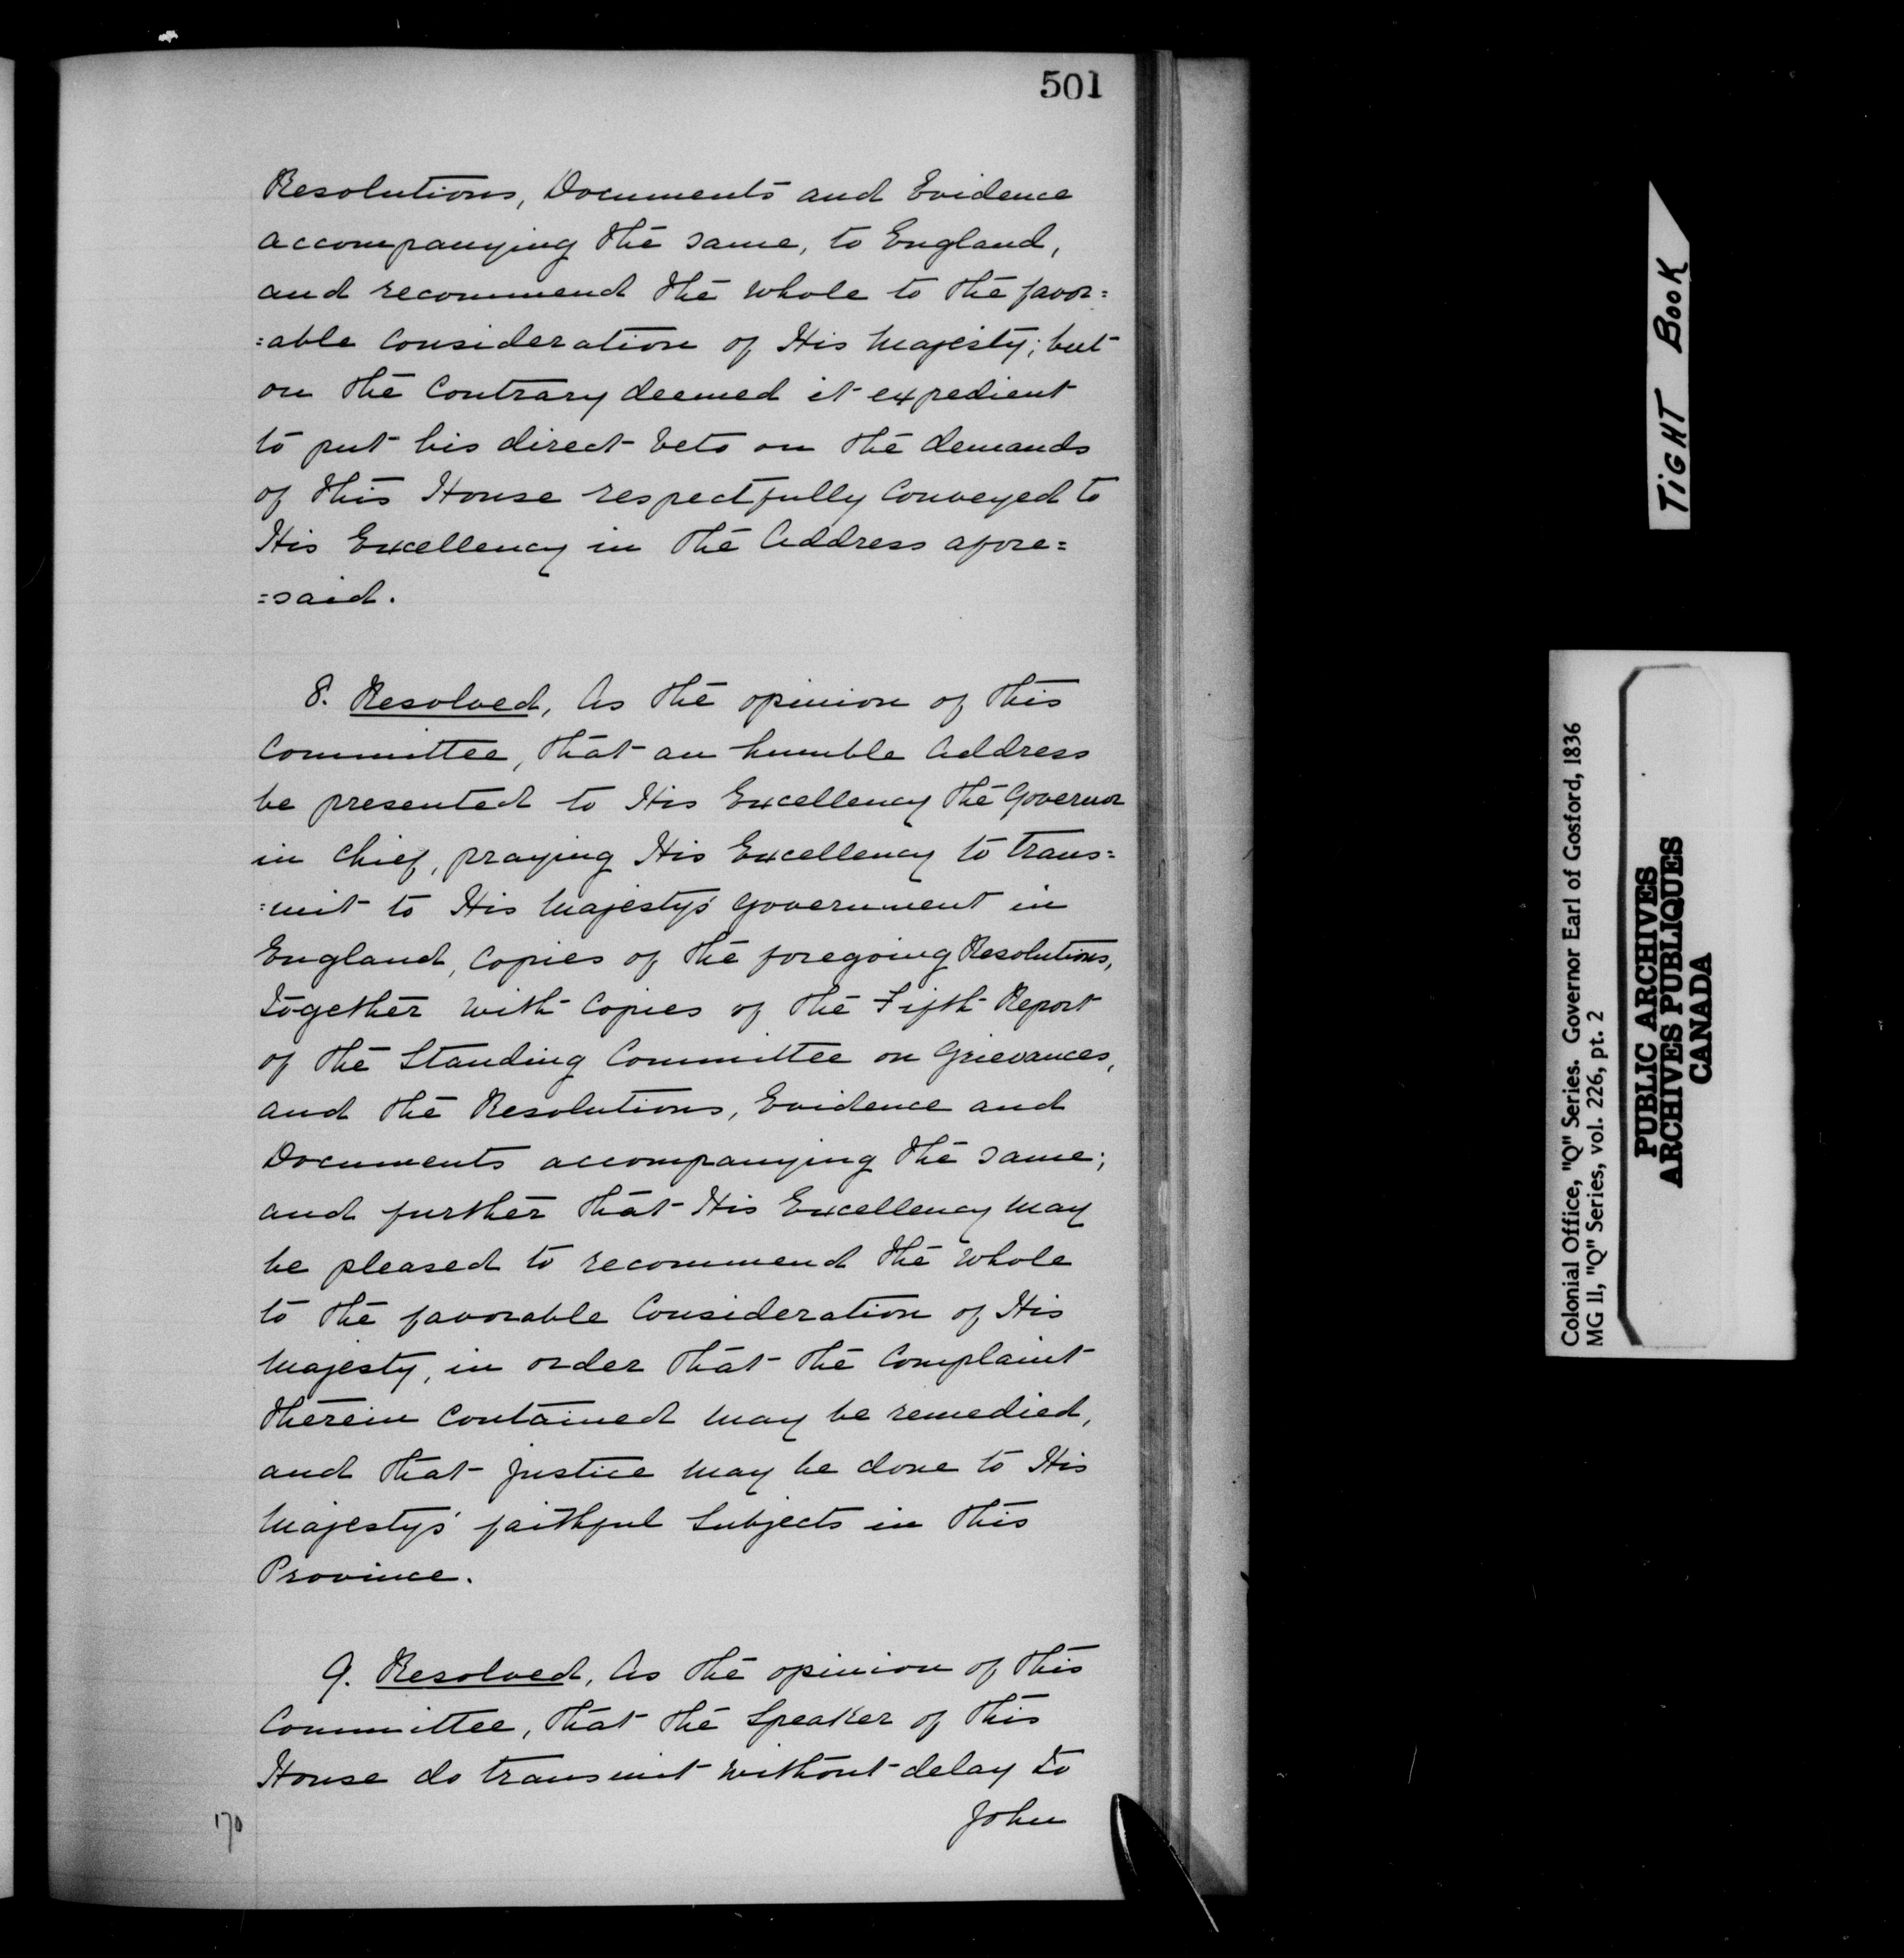 501
Resolutions, Documents and Evidence
accompanying the same, to England,
and recommend the whole to the favor=
=able Consideration of His Majesty; but
on the Contrary deemed it expedient
to put his direct Veto on the demands
of this House respectfully Conveyed to
His Excellency in the Address afore=
=said.
8. Resolved, As the opinion of this
Committee, that an humble Address
be presented to His Excellency the Governor
in Chief, praying His Excellency to trans=
=mit to His Majesty's Government in
England, Copies of the foregoing Resolutions,
together with Copies of the Fifth Report
of the Standing Committee on Grievances,
and the Resolutions, Evidence and
Documents accompanying the same;
and further that His Excellency may
be pleased to recommend the whole
to the favorable Consideration of His
Majesty, in order that the Complaint
therein Contained may be remedied,
and that Justice may be done to His
Majesty's faithful Subjects in this
Province.
9. Resolved, As the opinion of this
Committee, that the Speaker of this
House do transmit without delay to
John
170
TiGHT BooK
Colonial Office, "Q" Series. Governor Earl of Gosford, 1836
MG 11, "Q" Series, vol. 226, pt. 2
PUBLIC ARCHIVES
ARCHIVES PUBLIQUES
CANADA